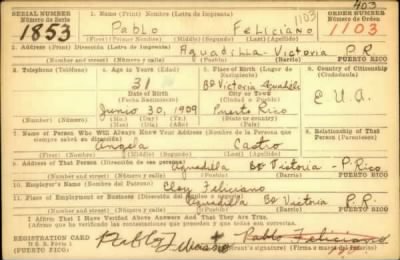 403
SERIAL NUMBER 1. Name (Print) Nombre (Letra de Imprenta) 1103 ORDER NUMBER
Número de Serie Número de Orden
1853 Pablo Feliciano 1103
(First) Nombre (Middle) Segundo (Last) Apellido
2. Address (Print) Dirección (Letra de Imprenta)
Aguadilla-Victoria P.R.
(Number and street) (Número y calle) (Town) (Pueblo) (Barrio) PUERTO RICO
3. Telephone (Teléfono) 4. Age in Years (Edad) 5. Place of Birth (Lugar de Nacimiento) 6. Country of Citizenship (Ciudadanía)
31 Bo Victoria
Date of Birth City or Town
(Fecha Nacimiento) (Ciudad o Pueblo) E.U.A.
Junio 30, 1909 Puerto Rico
State or country
7. Name of Person Who Will Always Know Your Address (Nombre de la Persona que siempre sabrá su dirección) 8. Relationship of That Person (Parentesco)
Angela Castro
(First) Nombre (Middle) (Segundo) (Last) Apellido
9. Address of That Person (Dirección de esa persona)
Aguadilla Bo Victoria - P. Rico
(Number and street) (Número y calle) (Pueblo) (Barrio) PUERTO RICO
10. Employer's Name (Nombre del Patrono)
Eloy Feliciano
11. Place of Employment or Business
Aguadilla Bo Victoria P.R.
(Number and street) (Número y calle) (Pueblo) (Barrio) PUERTO RICO
I Affirm That I Have Verified Above Answers And That They Are True.
Afirmo que he verificado las contestaciones que preceden y que son verdad.
REGISTRATION CARD
D. S. S. Form 1
PUERTO RICO
Pablo Feliciano